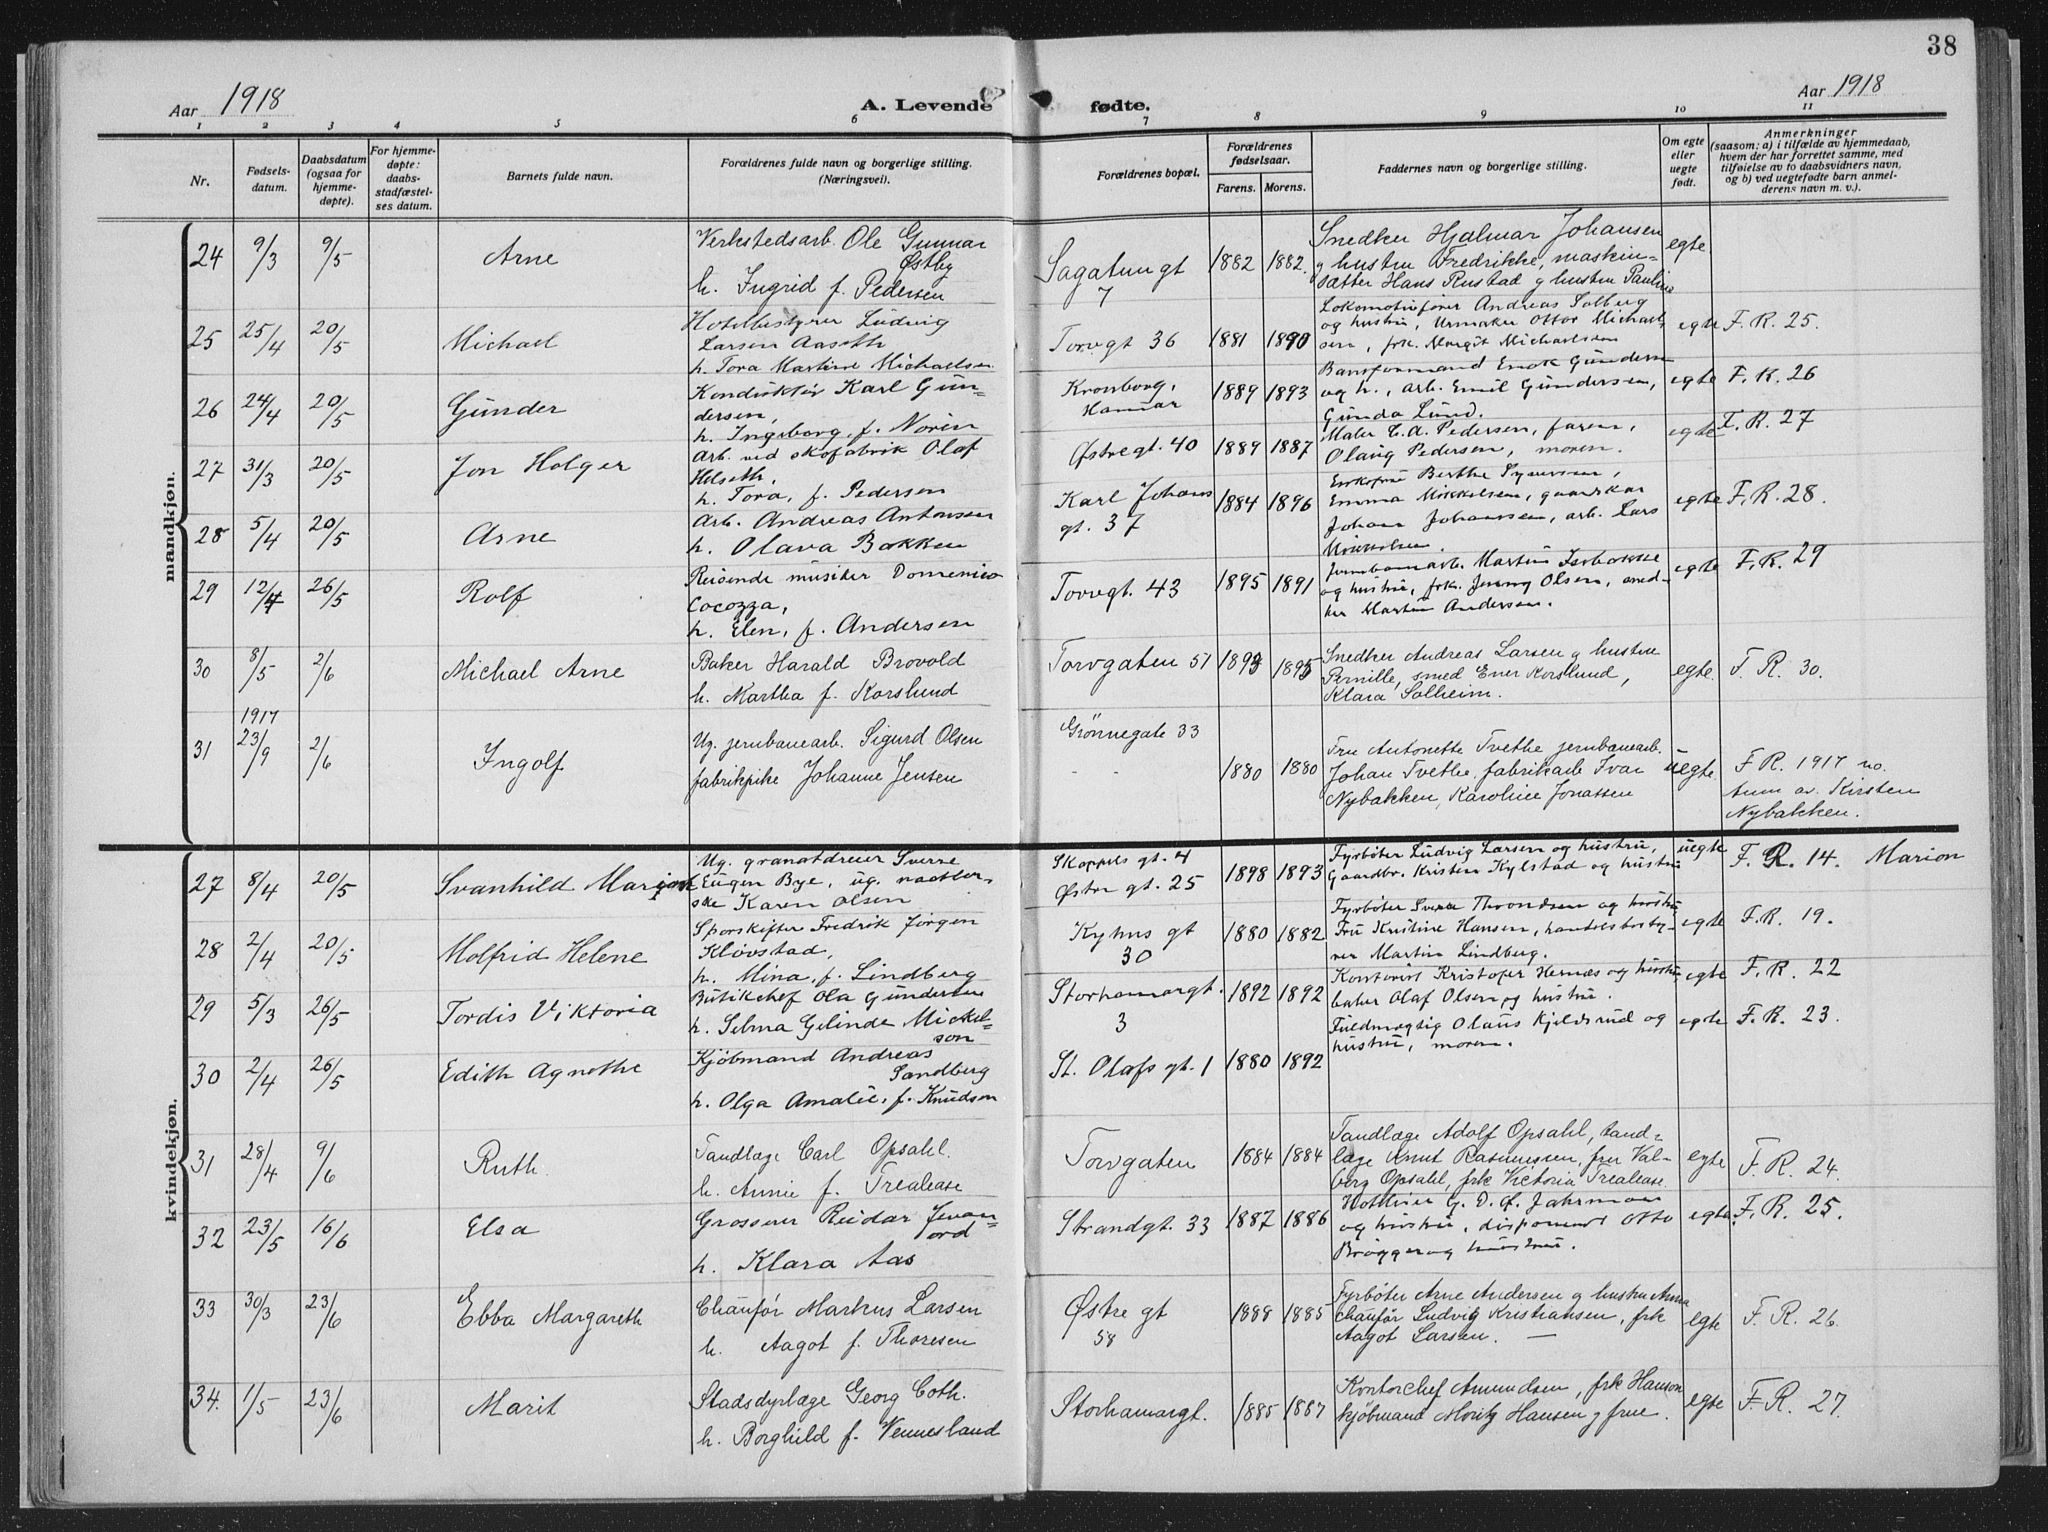 38
Aar 1918
A. Levende fødte.
Aar 1918
1 2 3 4 5 6 7 8 9 10 11
Nr.
Fødsels-
datum.
Daabsdatum
(ogsaa for
hjemme-
døpte).
For hjemme-
døpte:
daabs-
stadfæstel-
ses datum.
Barnets fulde navn.
Forældrenes fulde navn og borgerlige stilling.
(Næringsvei).
Forældrenes bopæl.
Forældrenes
fødselsaar.
Farens. Morens.
Faddernes navn og borgerlige stilling.
Om egte
eller
uegte
født.
Anmerkninger
(saasom: a) i tilfælde av hjemmedaab,
hvem der har forrettet samme, med
tilføielse av to daabsvidners navn,
og b) ved uegtefødte barn anmel-
derens navn m. v.).
mandkjøn.
24 9/3 9/5 Arne
Verkstedsarb. Ole Gunnar
Østby
h. Ingrid f. Pedersen
Sagatun gt
7
1882 1882.
Snedker Hjalmar Johansen
g hustru Fredrikke, maskin-
sætter Hans Rustad g hustru Pauline
egte
25 25/4 20/5 Michael
Hotelbestyrer Ludvig
Larsen Aaseth
h. Tora Martine Michaelsen
Torvgt 36
1881 1890
Lokomotivfører Andreas Solberg
og hustru, Urmaker Ottor Michael-
sen, frk. Margit Michaelsen
egte F. R. 25.
26 24/4 20/5 Gunder
Konduktør Karl Gun-
dersen,
h. Ingeborg, f. Noren
Kronborg,
Hamar
1889 1893
Baneformand Enok Gundersen
og h., arb. Emil Gundersen,
Gunda Lund.
egte F. R. 26
27 31/3 20/5 Jon Holger
Arb. ved skofabrik Olaf
Helseth,
h. Tora, f. Pedersen
Østregt. 40
1889 1887
Maler C. A. Pedersen, faren,
Olaug Pedersen, moren.
egte F. R. 27
28 5/4 20/5 Arne
Arb. Andreas Antonsen
h. Olava Bakken
Karl Johans
gt. 37
1884 1896
Enkefru Berthe Syversen,
Emma Mikkelsen, gaardskar
Johan Johanssen, arb. Lars
Mikkelsen.
egte F. R. 28.
29 12/4 26/5 Rolf
Reisende musiker Domenico
Cocozza,
h. Elen, f. Andersen
Torvgt. 43
1895 1891
Jernbanearb. Martin
og hustru, frk. Jenny Olsen, sned-
ker Martin Andersen.
egte F. R. 29
30 8/5 2/6 Michael Arne
Baker Harald Brovold
h. Martha f. Korslund
Torvgaten 51
1893 1895
Snedker Andreas Larsen g hustru
Pernille, smed Ener Korslund,
Klara Solheim.
egte. F. R. 30.
31 1917 23/9 2/6 Ingolf
Ug. jernbanearb. Sigurd Olsen
fabrikpike Johanne Jensen
Grønnegate 33
1880 1880
Fru Antonette Tvethe jernbanearb.
Johan Tvethe, fabrikarb Ivar
Nybakken, Karoline Jonassen
uegte
F. R. 1917 no.
Anm av. Kirsten
Nybakken.
kvindekjøn.
27 8/4 20/5 Svanhild Marion
Ug. granatdreier Sverre
Eugen Bye, ug.
Karen Olsen
Skappels gt. 4
Østre gt. 25
1898 1893
Fyrbøter Ludvig Larsen og hustru,
Gaardbr. Kristen Kylstad og hustru
uegte F. R. 14. Marion
28 2/4 20/5 Molfrid Helene
Sporskifter Fredrik Jørgen
Kløvstad,
h. Mina, f. Lindberg
Kyhns gt
30
1880 1882
Fyrbøter Sverre Throndsen og hustru
Fru Kristine Hansen, handelsbesty-
rer Martin Lindberg.
egte F. R. 19.
29 5/3 26/5 Tordis Viktoria
Butikchef Ola Gundersen
h. Selma Gelinde Mickel-
son
Storhamargt.
3
1892 1892
Kontorist Kristofer Hernæs og hustru,
baker Olaf Olsen og hustru.
egte F. R. 22
30 2/4 26/5 Edith Agnethe
Kjøbmand Andreas
Sandberg
h. Olga Amalie, f. Knudson
St. Olafs gt. 1
1880 1892
Fuldmægtig Olaus Kjeldsrud og
hustru, moren.
egte F. R. 23.
31 28/4 9/6 Ruth.
Tandlæge Carl Opsahl.
h. Annie f. Trealease
Torvgaten
1884 1884
Tandlæge Adolf Opsahl, tand-
læge Knut Rasmussen, fru Val-
berg Opsahl, frk Victoria Trealease.
egte F. R. 24.
32 23/5 16/6 Elsa
Grosserer Reidar Jevan-
ord
h. Klara Aas
Strandgt. 33
1887 1886
Hotleier G. D. F. Jahrman
og hustru, disponent Otto
Brøgger og hustru.
egte F. R. 25.
33 30/3 23/6 Ebba Margareth
Chauför Markus Larsen
h. Aagot f. Thoresen
Østre gt
58
1888 1885
Fyrbøter Arne Andersen g hustru Anna
chauför Ludvig Kristiansen, frk
Aagot Larsen. —
egte F. R. 26.
34. 1/5 23/6 Marit
Stadsdyrlæge Georg Coth.
h. Borghild f. Vennesland
Storhamargt.
1885 1887
Kontorchef Amundsen, frk Hanson
kjøbmand Moritz Hansen g frue.
egte F. R. 27.